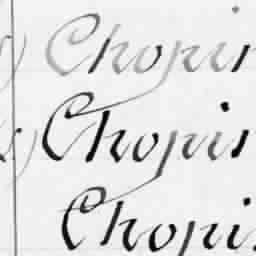 Chopin
Chopin
Chopin.